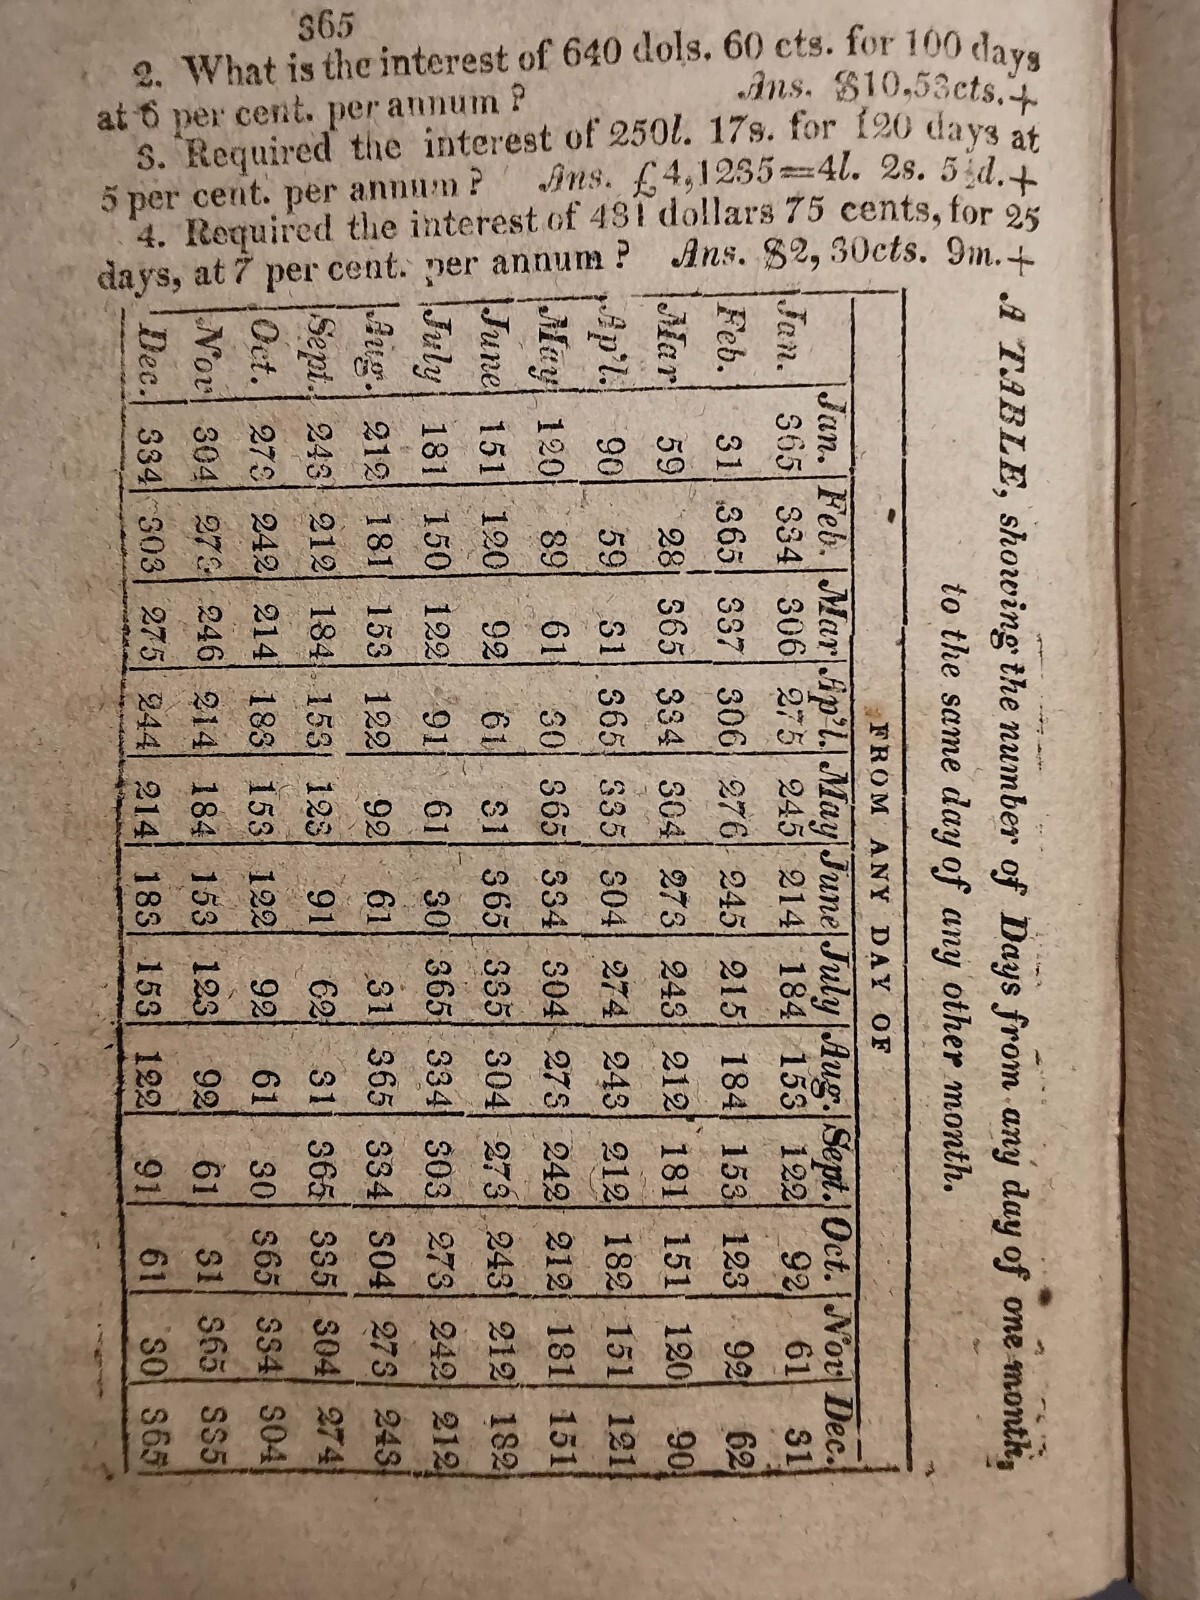 365
2. What is the interest of 640 dols. 60 cts. for 100 days
at 6 per cent. per annum? Ans. $10,53cts.+
3. Required the interest of 250l. 17s. for 120 days at
5 per cent. per annum? Ans. £4,1235=4l. 2s. 5½d.+
4. Required the interest of 481 dollars 75 cents, for 25
days, at 7 per cent. per annum? Ans. $2, 30cts. 9m.+
A TABLE, showing the number of Days from any day of one month,
to the same day of any other month.
FROM ANY DAY OF
Jan. Feb. Mar Ap'l. May June July Aug. Sept. Oct. Nov Dec.
Jan. 365 334 306 275 245 214 184 153 122 92 61 31
Feb. 31 365 337 306 276 245 215 184 153 123 92 62
Mar 59 28 365 334 304 273 243 212 181 151 120 90
Ap'l. 90 59 31 365 335 304 274 243 212 182 151 121
May 120 89 61 30 365 334 304 273 242 212 181 151
June 151 120 92 61 31 365 335 304 273 243 212 182
July 181 150 122 91 61 30 365 334 303 273 242 212
Aug. 212 181 153 122 92 61 31 365 334 304 273 243
Sept. 243 212 184 153 123 91 62 31 365 335 304 274
Oct. 273 242 214 183 153 122 92 61 30 365 334 304
Nov 304 273 246 214 184 153 123 92 61 31 365 335
Dec. 334 303 275 244 214 183 153 122 91 61 30 365